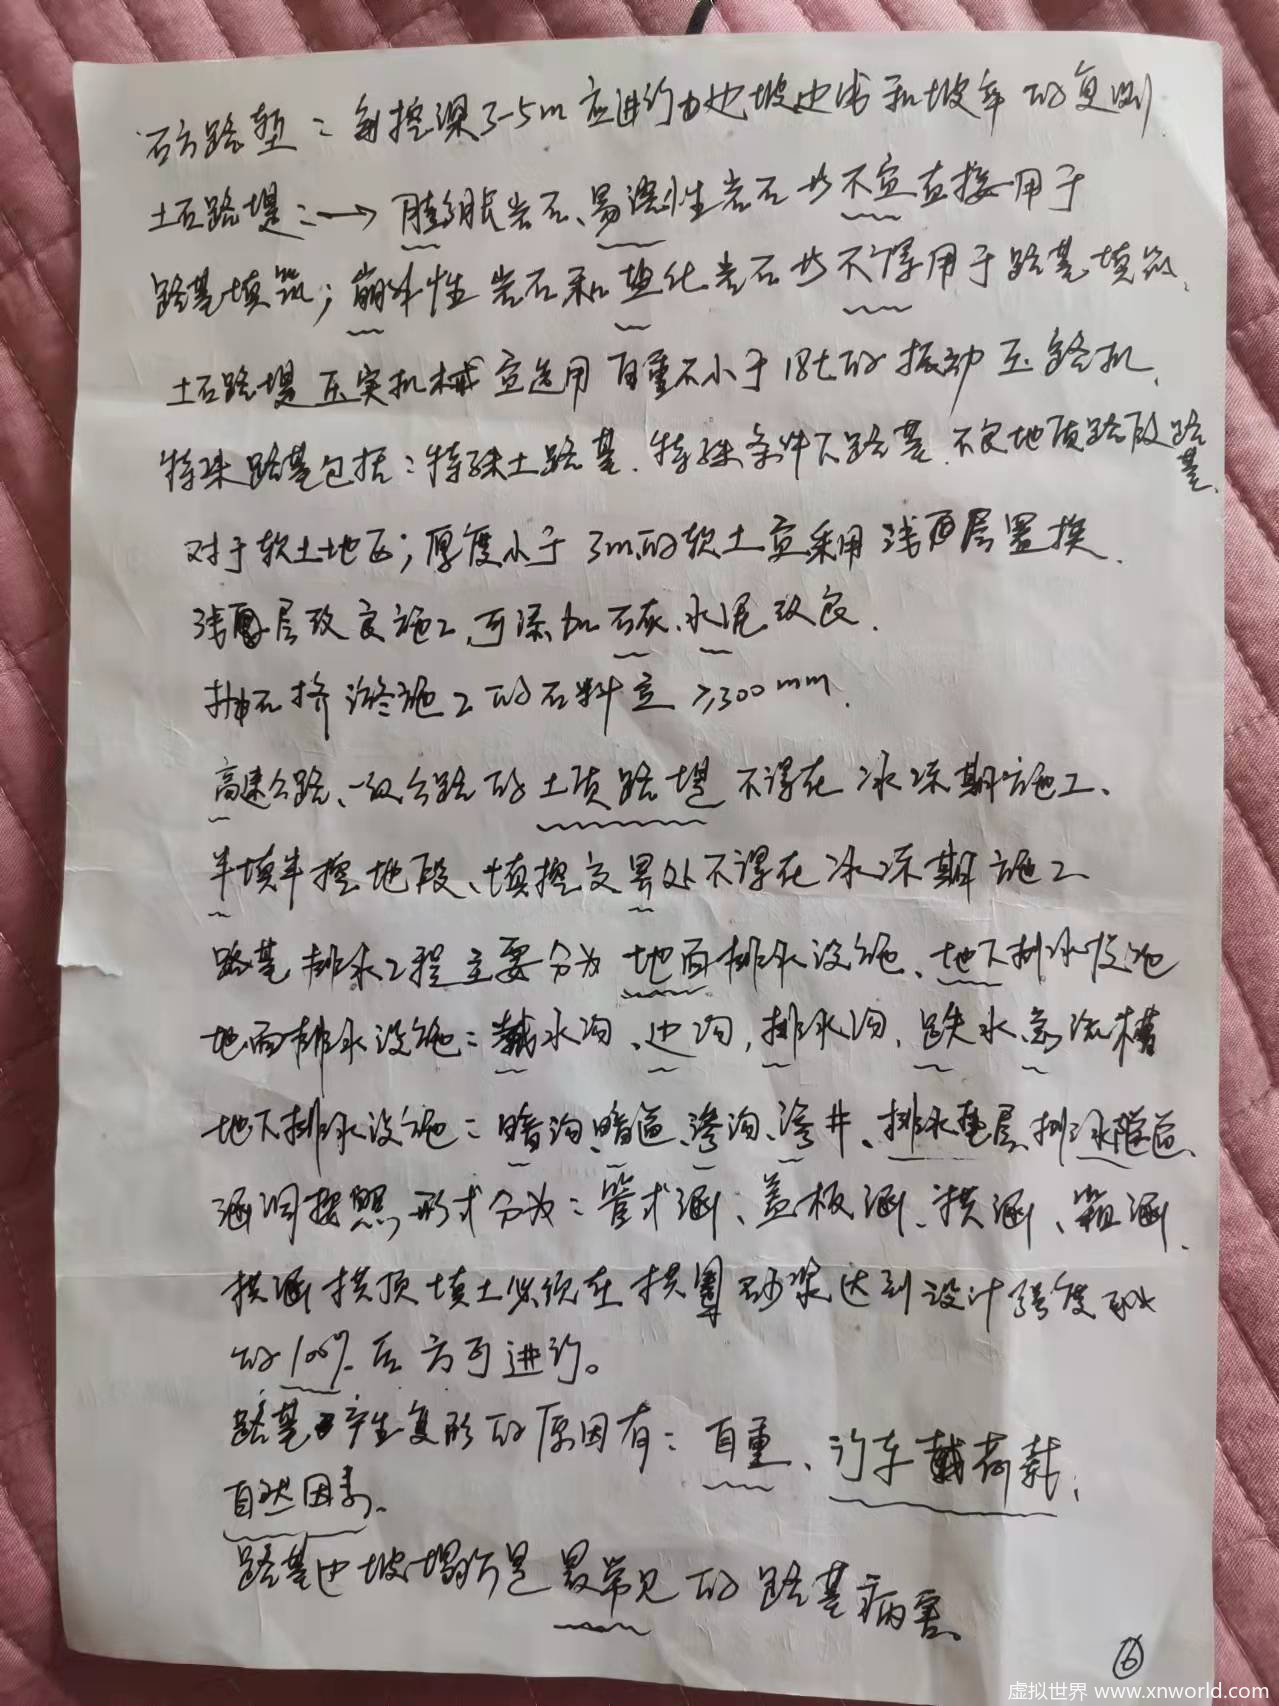 石方路堑：每挖深3-5m应进行边坡边线和坡率的复测
土石路堤：→膨胀岩石、易溶性岩石皆不宜直接用于
路基填筑；崩解性岩石和盐化岩石皆不得用于路基填筑、
土石路堤压实机械宜选用自重不小于18t的振动压路机、
特殊路基包括：特殊土路基、特殊条件下路基、不良地质路段路基、
对于软土地区；厚度小于3m的软土宜采用浅层置换、
浅层改良施工，可添加石灰、水泥改良、
抛石挤淤施工的石料宜≥300mm、
高速公路、一级公路的土质路堤不得在冰冻期施工、
半填半挖地段、填挖交界处不得在冰冻期施工
路基排水工程主要分为地面排水设施、地下排水设施
地面排水设施：截水沟、边沟，排水沟、跌水、急流槽
地下排水设施：暗沟、暗道、渗沟、渗井、排水垫层、排水隧道、
涵洞按照形式分为：管式涵、盖板涵、拱涵、箱涵、
拱涵拱顶填土必须在拱圈砂浆达到设计强度
的100%后方可进行。
路基产生变形的原因有：自重、行车荷载、
自然因素、
路基边坡塌方是最常见的路基病害。
⑥
虚拟世界 www.xnworld.com